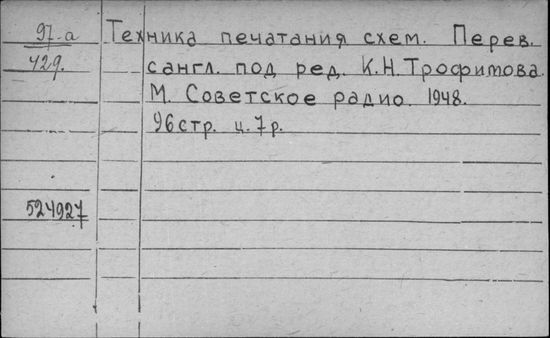 97-а Техника печатания схем. Перев.
429. сангл. под ред. К.Н.Трофимова.
М. Советское радио. 1948.
96стр. ц. 7р.
524927